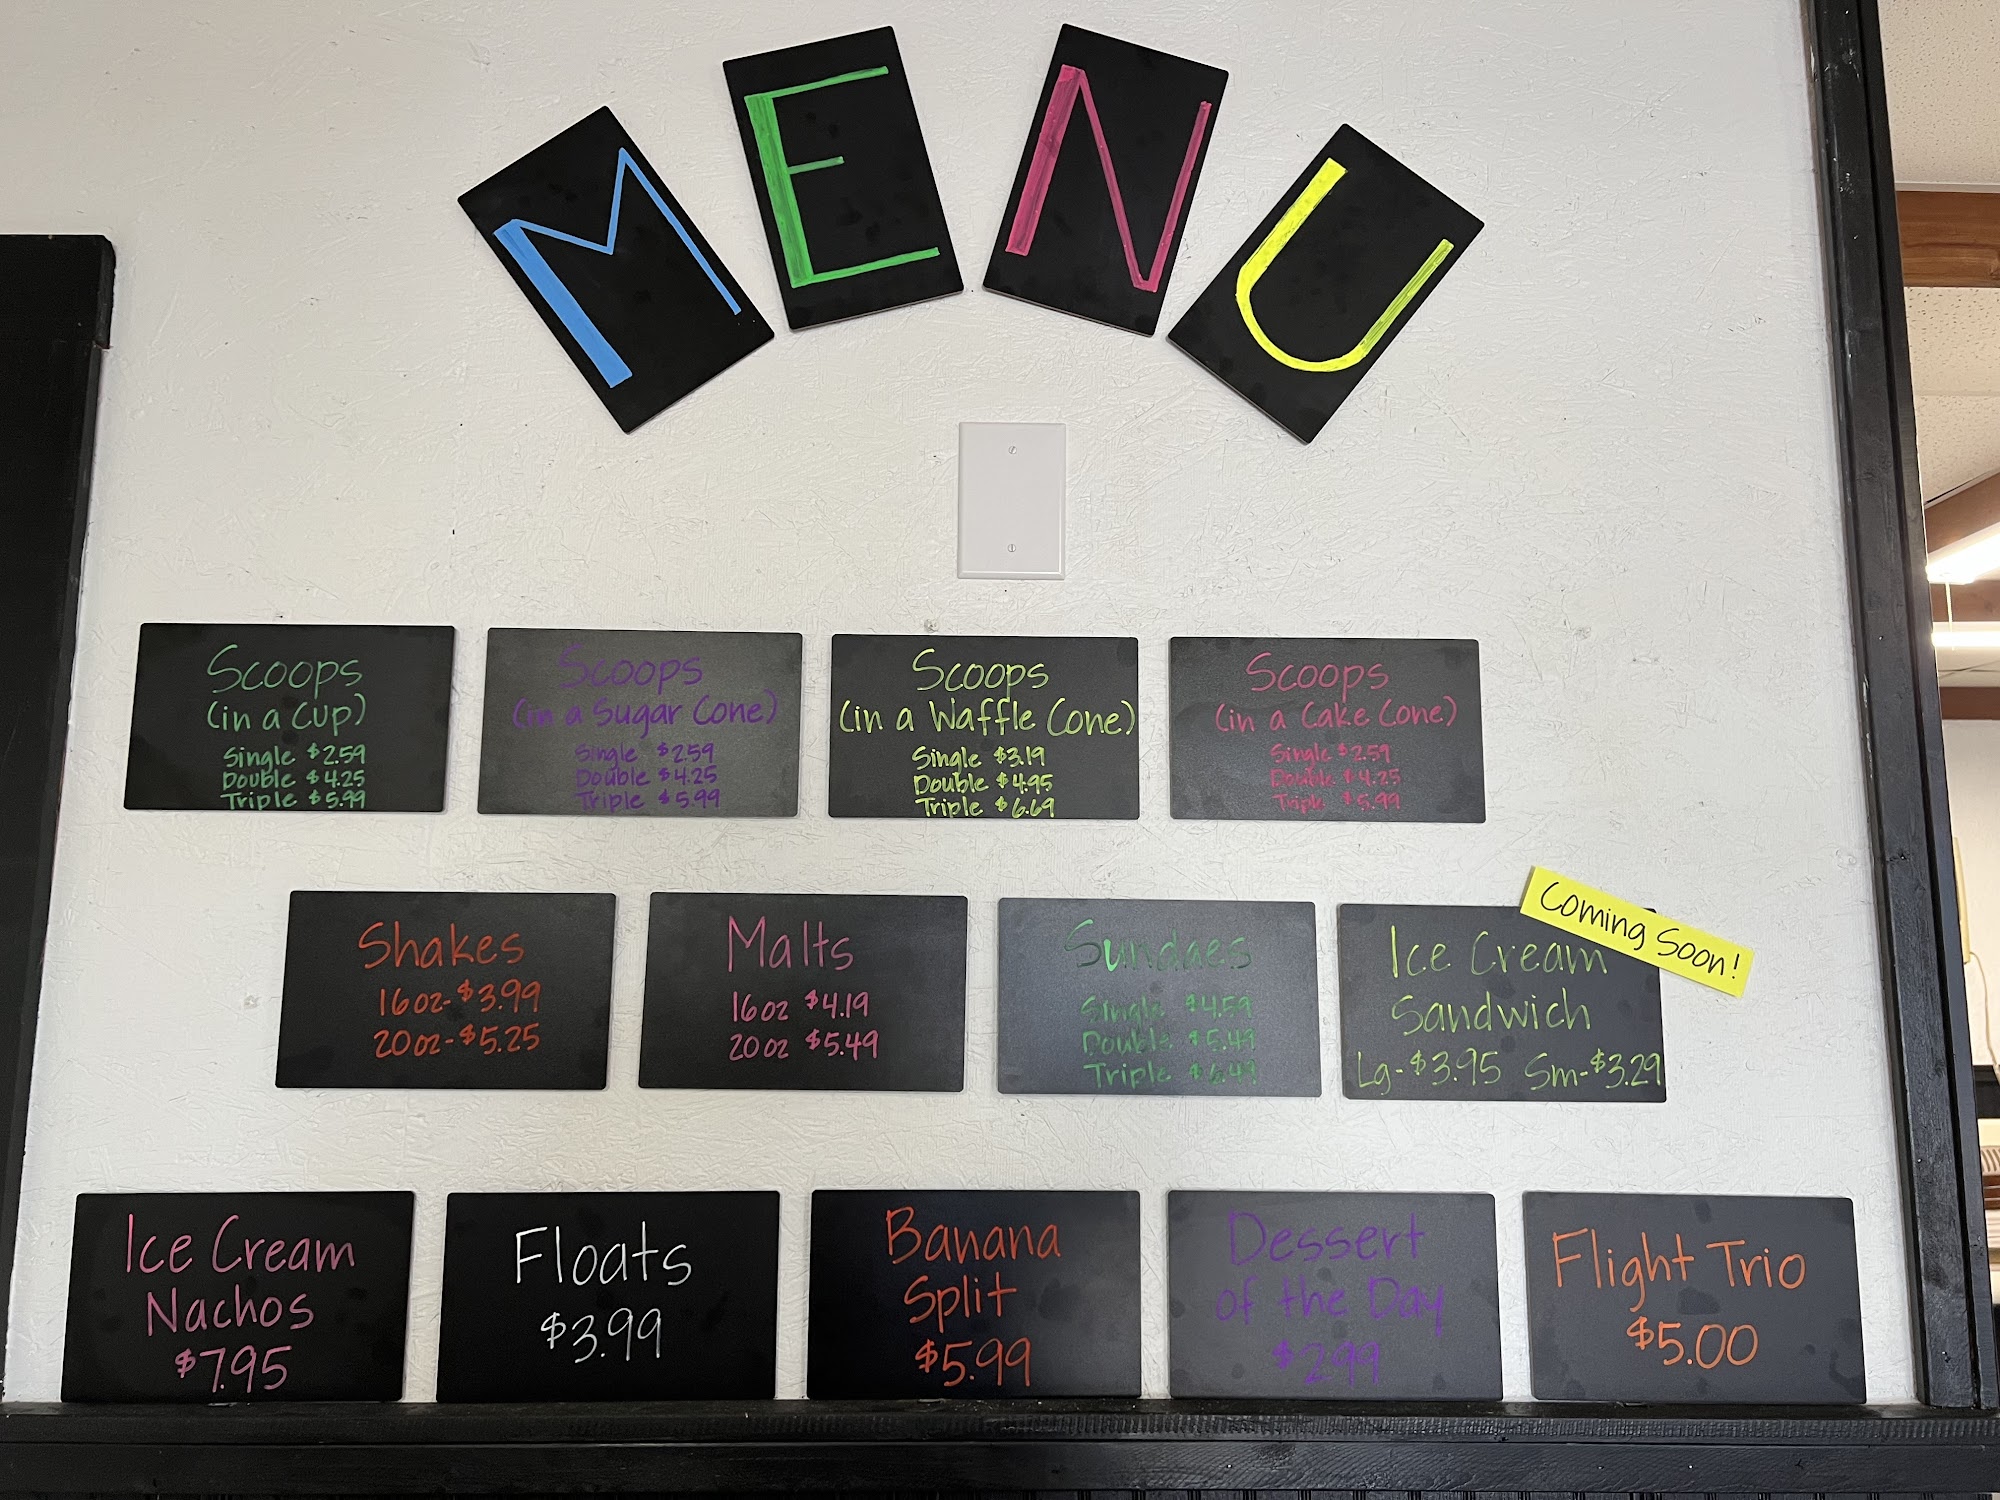 MENU
Scoops
(in a Cup)
Single $2.59
Double $4.25
Triple $5.99
Scoops
(in a Sugar Cone)
Single $2.59
Double $4.25
Triple $5.99
Scoops
(in a Waffle Cone)
Single $3.19
Double $4.95
Triple $6.69
Scoops
(in a Cake Cone)
Single $2.59
Double $4.25
Triple $5.99
Shakes
16oz-$3.99
20oz-$5.25
Malts
16oz $4.19
20oz $5.49
Sundaes
Single $4.59
Double $5.49
Triple $6.49
Coming Soon!
Ice Cream
Sandwich
Lg-$3.95 Sm-$3.29
Ice Cream
Nachos
$7.95
Floats
$3.99
Banana
Split
$5.99
Dessert
of the Day
$2.99
Flight Trio
$5.00